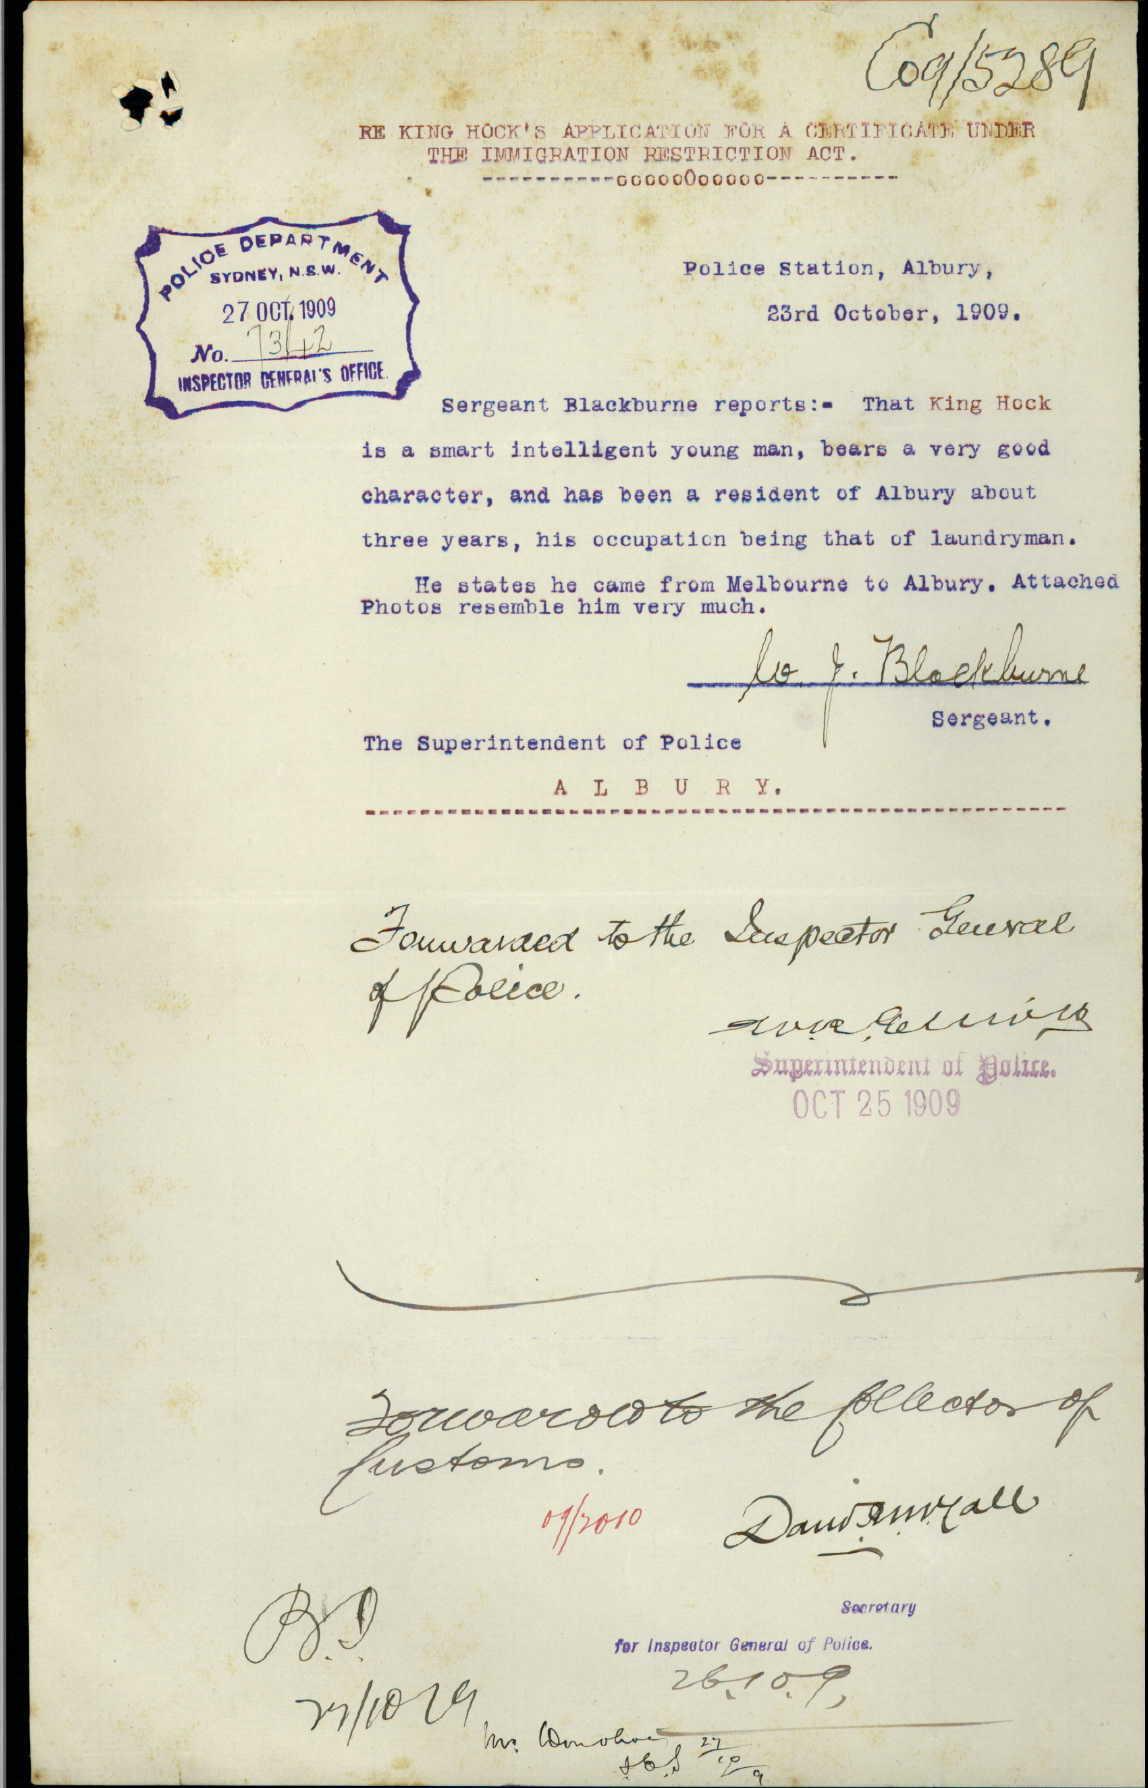 C09/5289
RE KING HOCK'S APPLICATION FOR A CERTIFICATE UNDER
THE IMMIGRATION RESTRICTION ACT.
----------oooooOooooo----------
POLICE DEPARTMENT
SYDNEY, N.S.W.
27 OCT. 1909
No. 7342
INSPECTOR GENERAL'S OFFICE.
Police Station, Albury,
23rd October, 1909.
Sergeant Blackburne reports:- That King Hock
is a smart intelligent young man, bears a very good
character, and has been a resident of Albury about
three years, his occupation being that of laundryman.
He states he came from Melbourne to Albury. Attached
Photos resemble him very much.
J. Blackburne
Sergeant.
The Superintendent of Police
A L B U R Y.
Forwarded to the Inspector General
of Police.
Superintendent of Police.
OCT 25 1909
Forwarded to the Collector of
Customs.
09/2010
Secretary
for Inspector General of Police.
26.10.9,
27/10/09
Mr. Donohoe
27/10/9